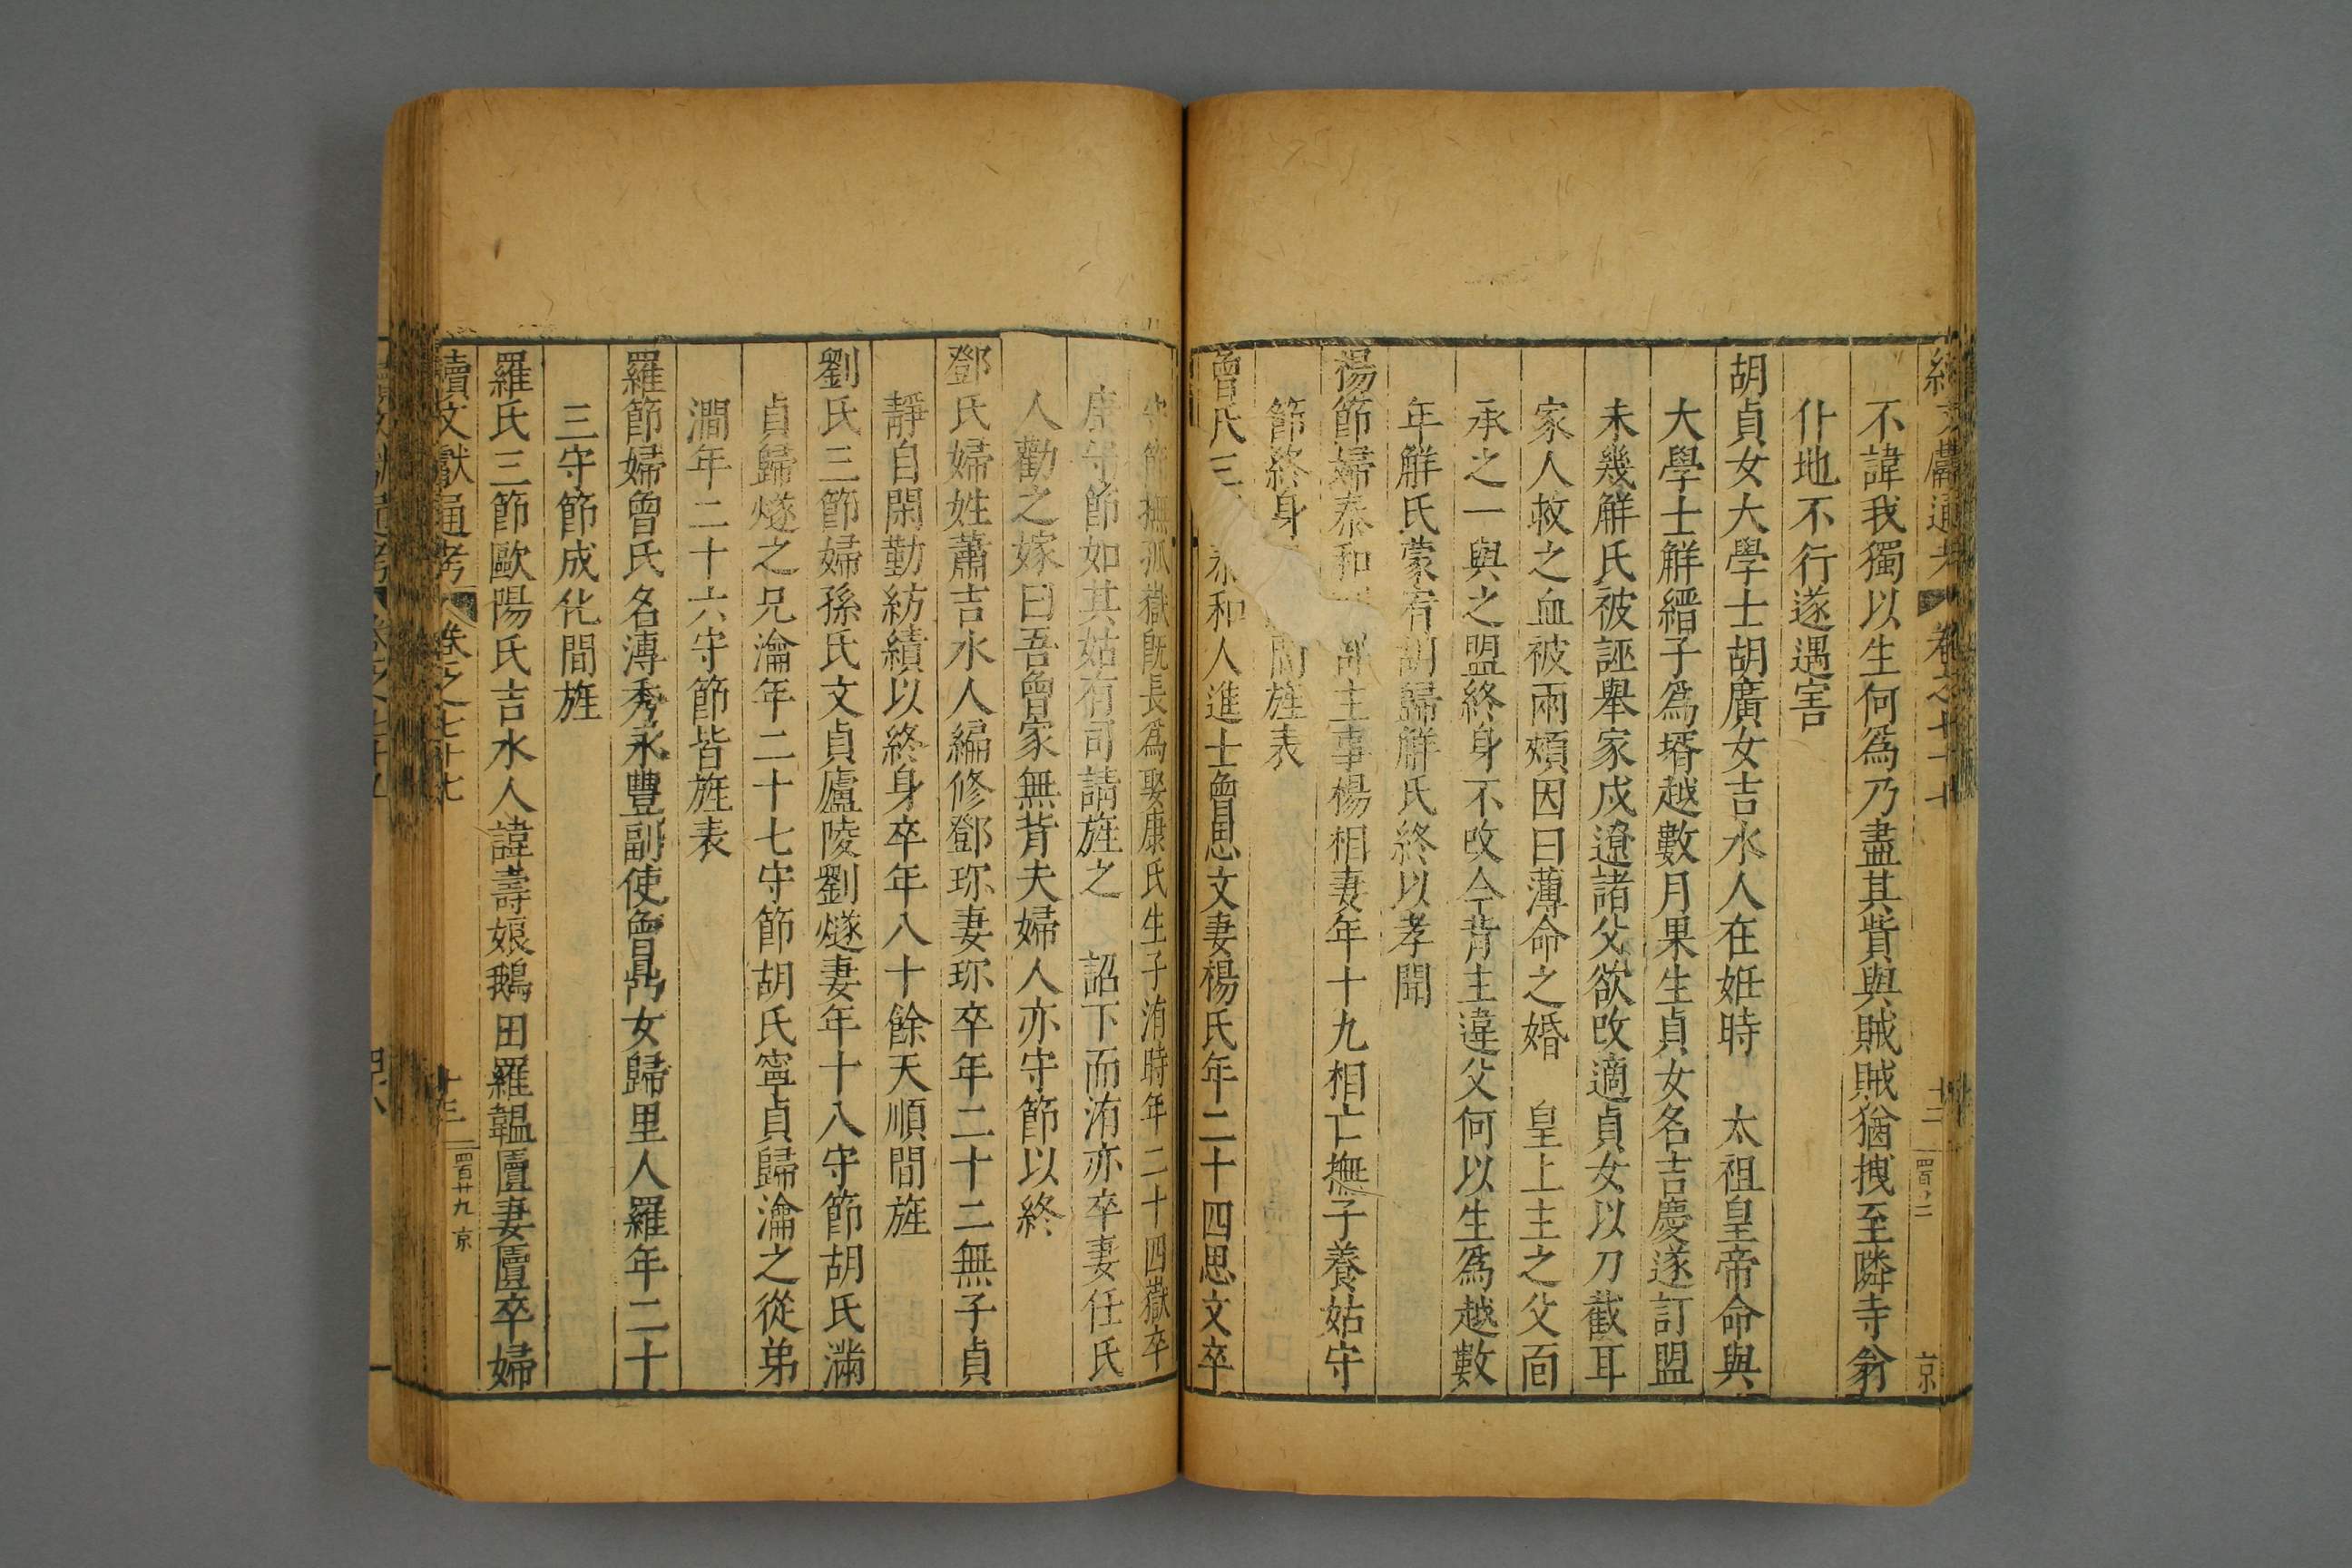 不諱我獨以生何爲乃盡其貲與賊賊猶拽至隣寺翁
仆地不行遂遇害
胡貞女大學士胡廣女吉水人在姙時 太祖皇帝命與
大學士觧縉子爲壻越數月果生貞女名吉慶遂訂盟
未幾觧氏被誣舉家戍遼諸父欲改適貞女以刀截耳
家人救之血被兩頰因曰薄命之婚 皇上主之父面
承之一與之盟終身不改今背主違父何以生爲越數
年觧氏蒙宥胡歸觧氏終以孝聞
楊節婦泰和 部主事楊相妻年十九相亡撫子養姑守
節終身 間旌表
曾氏三 泰和人進士曾思文妻楊氏年二十四思文卒
守節撫孤嶽旣長爲娶康氏生子洧時年二十四嶽卒
康守節如其姑有司請旌之 詔下而洧亦卒妻任氏
人勸之嫁曰吾曾家無背夫婦人亦守節以終
鄧氏婦姓蕭吉水人編修鄧珎妻珎卒年二十二無子貞
靜自閑勤紡績以終身卒年八十餘天順間旌
劉氏三節婦孫氏文貞廬陵劉燧妻年十八守節胡氏滿
貞歸燧之兄瀹年二十七守節胡氏寧貞歸瀹之從弟
澗年二十六守節皆旌表
羅節婦曾氏名溥秀永豐副使曾鼎女歸里人羅年二十
三守節成化間旌
羅氏三節歐陽氏吉水人諱壽娘鵝田羅韞匵妻匵卒婦
續文獻通考 卷之七十七 十三 四百廿九 京